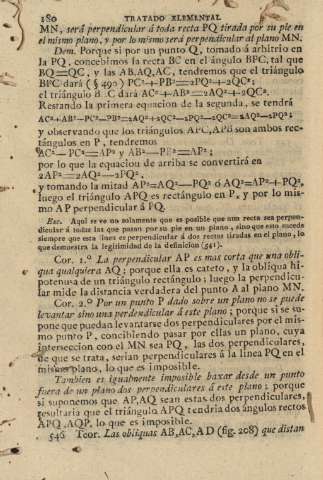 180 TRATADO ELEMENTAL
MN, será perpendicular á toda recta PQ tirada por su pie en
el mismo plano, y por lo mismo será perpendicular al plano MN.
Dem. Porque si por un punto Q, tomado á arbitrio en
la PQ, concebimos la recta BC en el ángulo BPC, tal que
BQ=QC, y las AB,AQ,AC, tendremos que el triángulo
BPC dará (§ 490) PC²+PB²=2PQ²+2QC²;
el triángulo BAC dará AC²+AB²=2AQ²+2QC².
Restando la primera equacion de la segunda, se tendrá
AC²+AB²—PC²—PB²=2AQ²+2QC²—2PQ²—2QC²=2AQ²—2PQ²;
y observando que los triángulos APC,APB son ambos rec-
tángulos en P, tendremos
AC²—PC²=AP² y AB²—PB²=AP²;
por lo que la equacion de arriba se convertirá en
2AP²=2AQ²—2PQ²,
y tomando la mitad AP²=AQ²—PQ² ó AQ²=AP²+PQ²,
luego el triángulo APQ es rectángulo en P, y por lo mis-
mo AP perpendicular á PQ.
Esc. Aqui se ve no solamente que es posible que una recta sea perpen-
dicular á todas las que pasan por su pie en un plano, sino que esto sucede
siempre que esta linea es perpendicular á dos rectas tiradas en el plano, lo
que demuestra la legitimidad de la definicion (541).
Cor. 1.º La perpendicular AP es mas corta que una obli-
qua qualquiera AQ; porque ella es cateto, y la obliqua hi-
potenusa de un triángulo rectángulo; luego la perpendicu-
lar mide la distancia verdadera del punto A al plano MN.
Cor. 2.º Por un punto P dado sobre un plano no se puede
levantar sino una perpendicular á este plano; porque si se su-
pone que puedan levantarse dos perpendiculares por el mis-
mo punto P, concibiendo pasar por ellas un plano, cuya
interseccion con el MN sea PQ, las dos perpendiculares,
de que se trata, serian perpendiculares á la linea PQ en el
mismo plano, lo que es imposible.
Tambien es igualmente imposible baxar desde un punto
fuera de un plano dos perpendiculares á este plano; porque
si suponemos que AP,AQ sean estas dos perpendiculares,
resultaria que el triángulo APQ tendria dos ángulos rectos
APQ,AQP, lo que es imposible.
546 Teor. Las obliquas AB,AC,AD (fig. 208) que distan